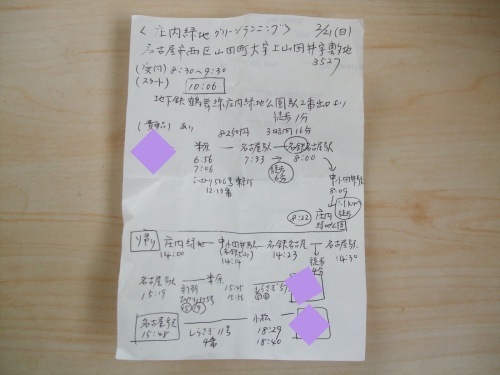 ＜庄内緑地グリーンランニング＞ 2/21(日)
名古屋市西区山田町大字上小田井字敷地
3527
(受付) 8:30〜9:30
(スタート) 10:06
地下鉄鶴舞線庄内緑地公園駅2番出口より
徒歩1分
(貴重品) あり 8250円 3時間16分
米原 — 名古屋駅 — 名鉄名古屋
6:56 7:33 8:00
7:06 徒歩
506号 中小田井駅
12.13番 8:09
1.1km
徒歩
8:22 庄内
緑地公園
帰り 庄内緑地 — 中小田井駅 — 名鉄名古屋 — 名古屋駅
14:00 14:14 14:23 徒歩 14:30
名古屋駅 — 米原
15:19 しらさぎ57
名古屋発 しらさぎ11号 小松
15:48 4番 18:29
18:40